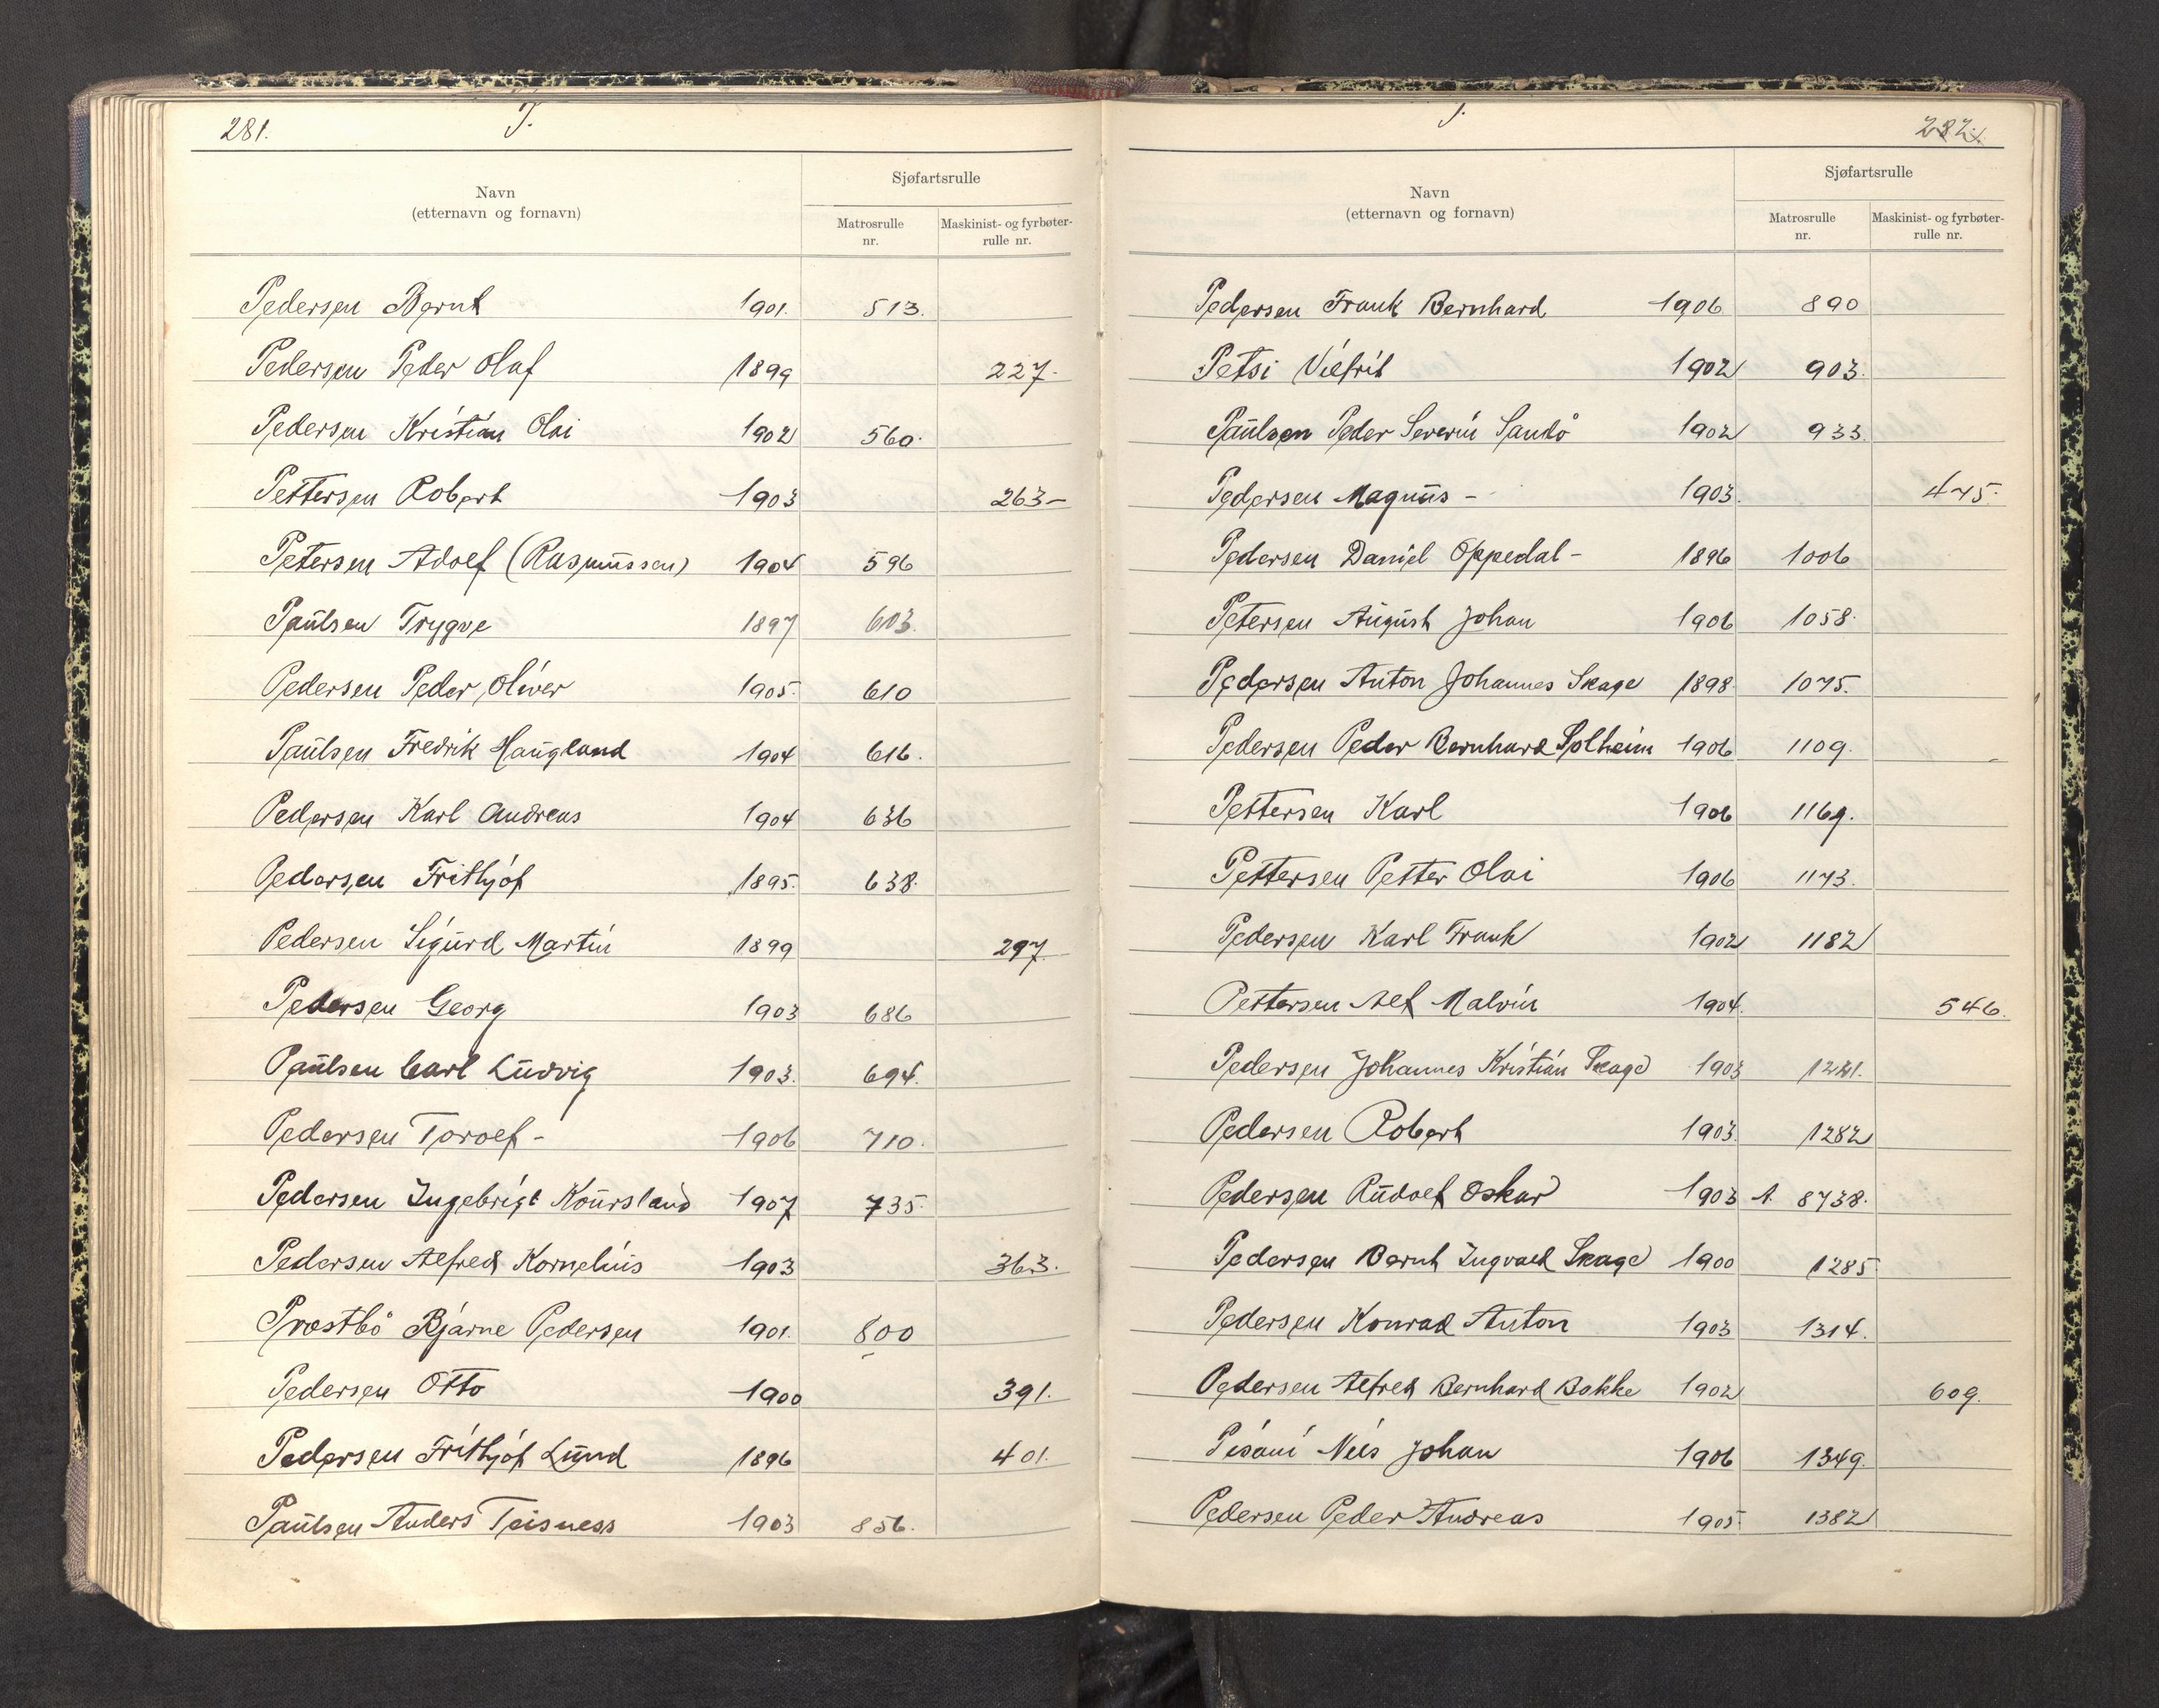 281.
P.
Navn
(etternavn og fornavn)
Sjøfartsrulle
Matrosrulle
nr.
Maskinist- og fyrbøter-
rulle nr.
Pedersen Bernt 1901. 513.
Pedersen Peder Olaf 1899 227.-
Pedersen Kristian Olai 1902 560.
Pettersen Robert 1903 263-
Petersen Adolf (Rasmussen) 1904 596
Paulsen Trygve 1897 603.
Pedersen Peder Oliver 1905. 610
Paulsen Fredrik Haugland 1904 616.
Pedersen Karl Andreas 1904 636
Pedersen Frithjof 1895. 638.
Pedersen Sigurd Martin 1899 297.
Pedersen Georg 1903 686
Paulsen Carl Ludvig 1903. 694.
Pedersen Torolf - 1906 710.
Pedersen Ingebrigt Koursland 1907 735.
Pedersen Alfred Kornelius 1903 363.
Prostbö Bjarne Pedersen 1901. 800
Pedersen Otto 1900 391.
Pedersen Frithjof Lund 1896 401.
Paulsen Anders Teisness 1903 856.
P.
282.
Navn
(etternavn og fornavn)
Sjøfartsrulle
Matrosrulle
nr.
Maskinist- og fyrbøter-
rulle nr.
Pedersen Frank Bernhard 1906 890
Petsi Vilfrit 1902 903.
Paulsen Peder Severin Sandö 1902 933.
Pedersen Magnus - 1903. 475.
Pedersen Daniel Oppedal - 1896 1006
Petersen August Johan 1906 1058.
Pedersen Anton Johannes Skage 1898 1075.
Pedersen Peder Bernhard Solheim 1906 1109.
Pettersen Karl 1906 1169.
Pettersen Petter Olai 1906 1173.
Pedersen Karl Frank 1902 1182
Pettersen Alf Malvin 1904. 546.
Pedersen Johannes Kristian Skage 1903 1221.
Pedersen Robert 1903. 1282
Pedersen Rudolf Oskar 1903 A. 8738.
Pedersen Bernt Ingvald Skage 1900 1285
Pedersen Konrad Anton 1903 1314.
Pedersen Alfred Bernhard Bakke 1902 609.
Pisani Nils Johan 1906 1349.
Pedersen Peder Andreas 1905. 1382